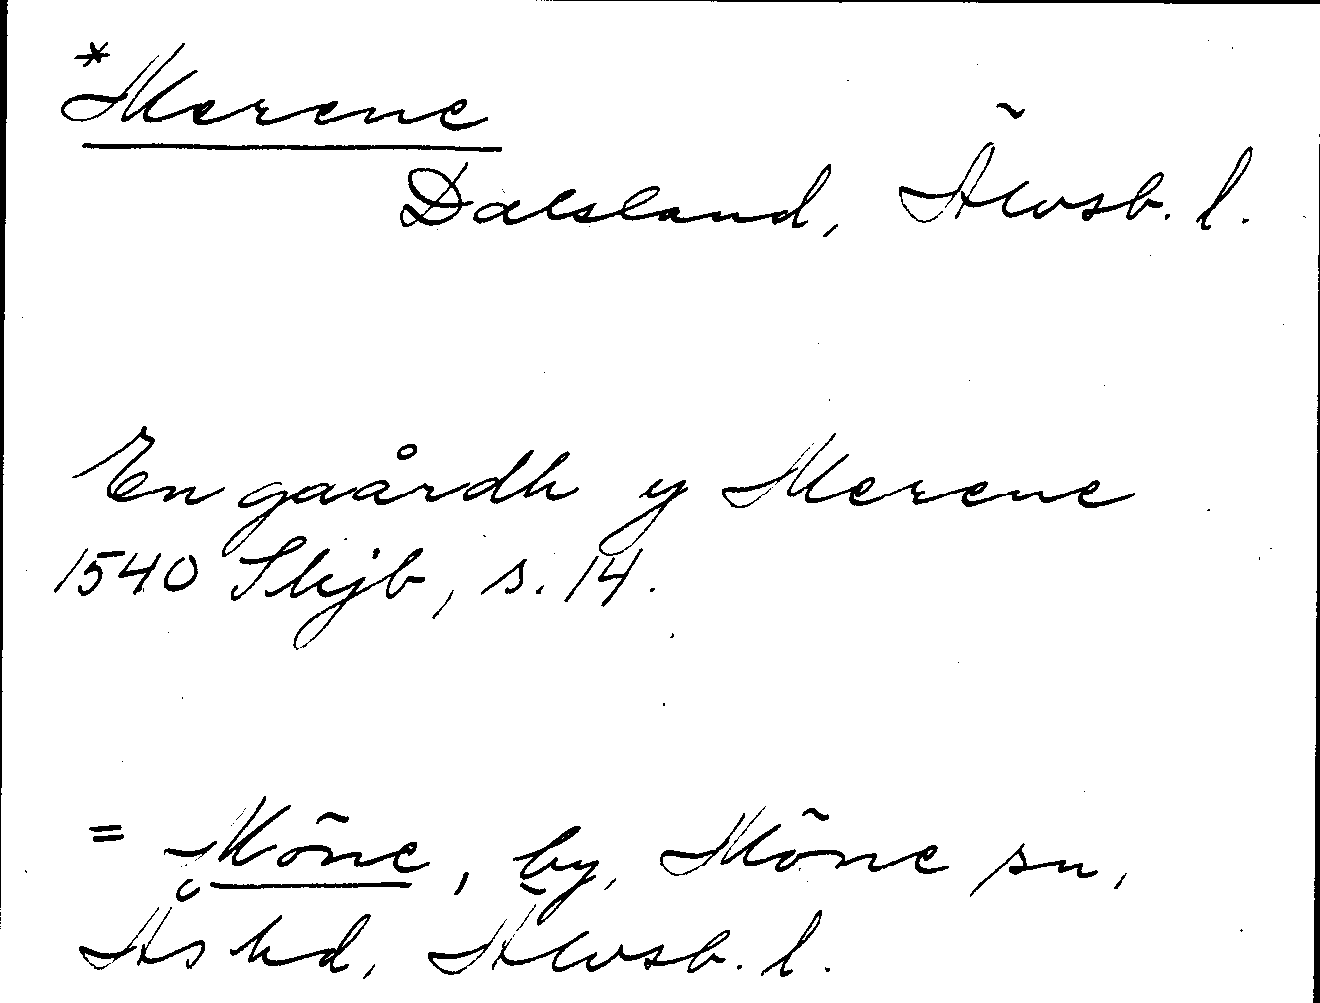 *Merene
Dalsland, Älvsb. l.
En gaårdh y Merene
1540 Skjb, s. 14.
= Möne, by, Möne sn,
Ås hd, Älvsb. l.